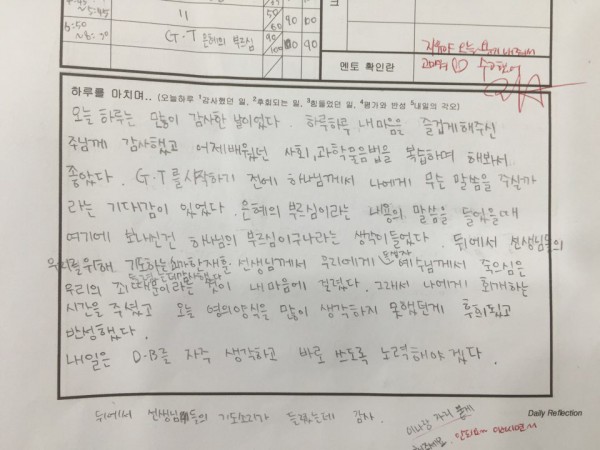 ~5:45
〃
50
60
90
00
6:50
G·T 은혜의 부르심
90
100
90
크
멘토 확인란
지유야 오늘
고마워 수고했어
하루를 마치며.. (오늘하루 ¹감사했던 일, ²후회되는 일, ³힘들었던 일, ⁴평가와 반성 ⁵내일의 각오)
오늘 하루는 많이 감사한 날이었다. 하루하루 내 마음을 즐겁게해주신
주님께 감사했고 어제배웠던 사회,과학물음법을 복습하며 해와서
좋았다. G·T를 시작하기 전에 하나님께서 나에게 무슨 말씀을 주실까
라는 기대감이 있었다. 은혜의 부르심이라는 내용의 말씀을 들었을때
여기에 보내신건 하나님의 부르심이구나라는 생각이들었다. 뒤에서 선생님들의
우리를위해 기도하는 선생님께서 우리에게 예수님께서 죽으심은
우리의 죄 때문이라는 것이 내 마음에 걸렸다. 그래서 나에게 회개하는
시간을 주셨고 오늘 영의양식을 많이 생각하지 못했던게 후회됬고
반성했다.
내일은 D·B를 자주 생각하고 바로 쓰도록 노력해야 겠다.
Daily Reflection
뒤에서 선생님들의 기도소리가 들렸는데 감사.